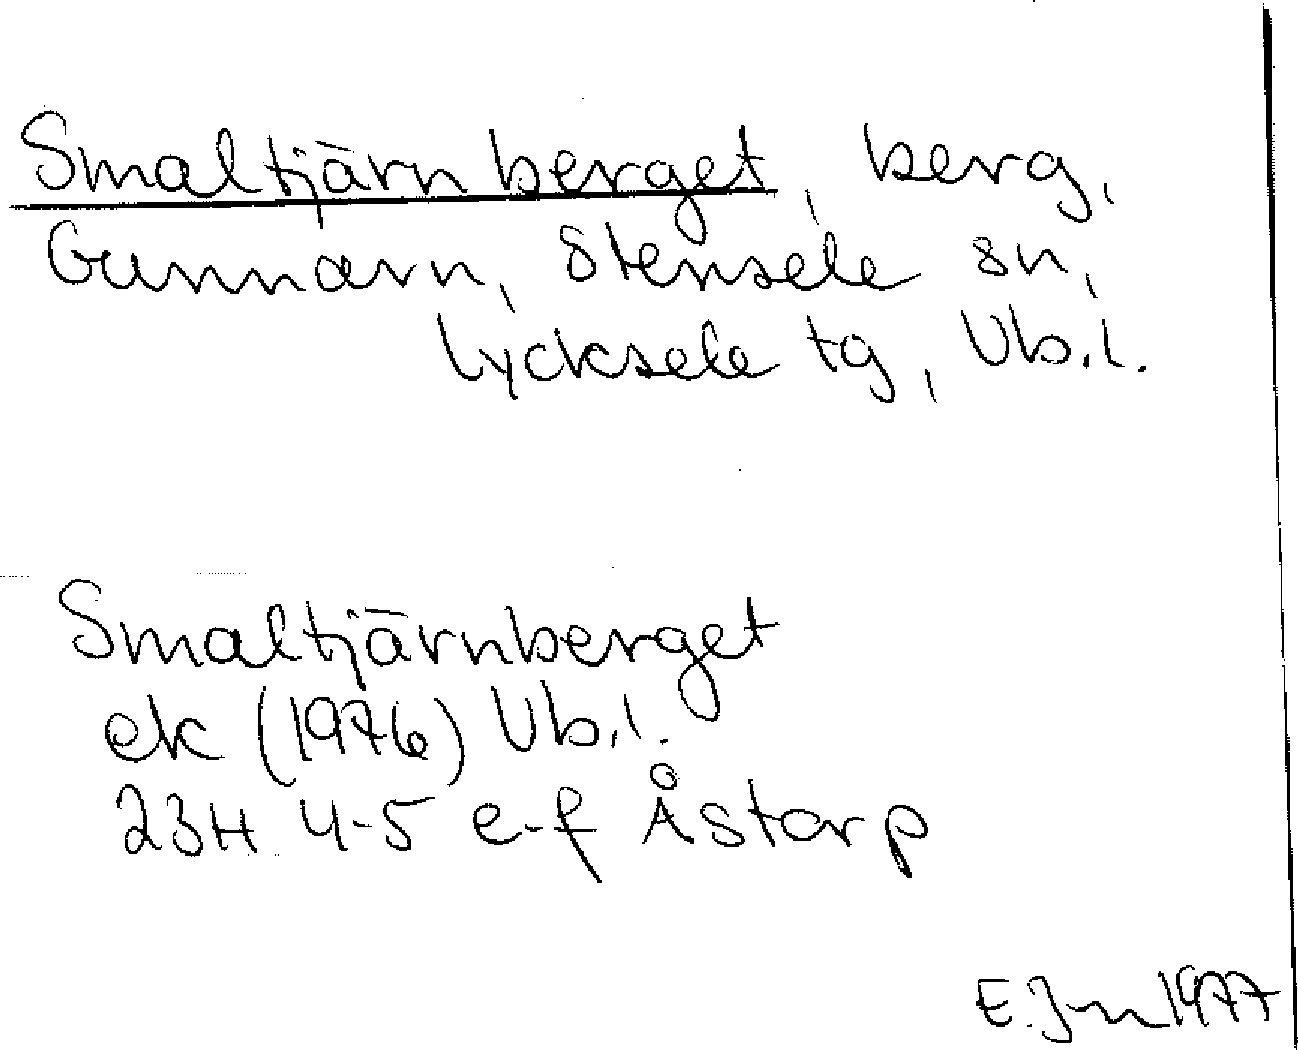 Smaltjärnberget, berg,
Gunnarn, Stensele sn,
Lycksele tg, Vb.l.
Smaltjärnberget
ek (1976) Vb.l.
23H 4-5 e-f Åstorp
E. 1977